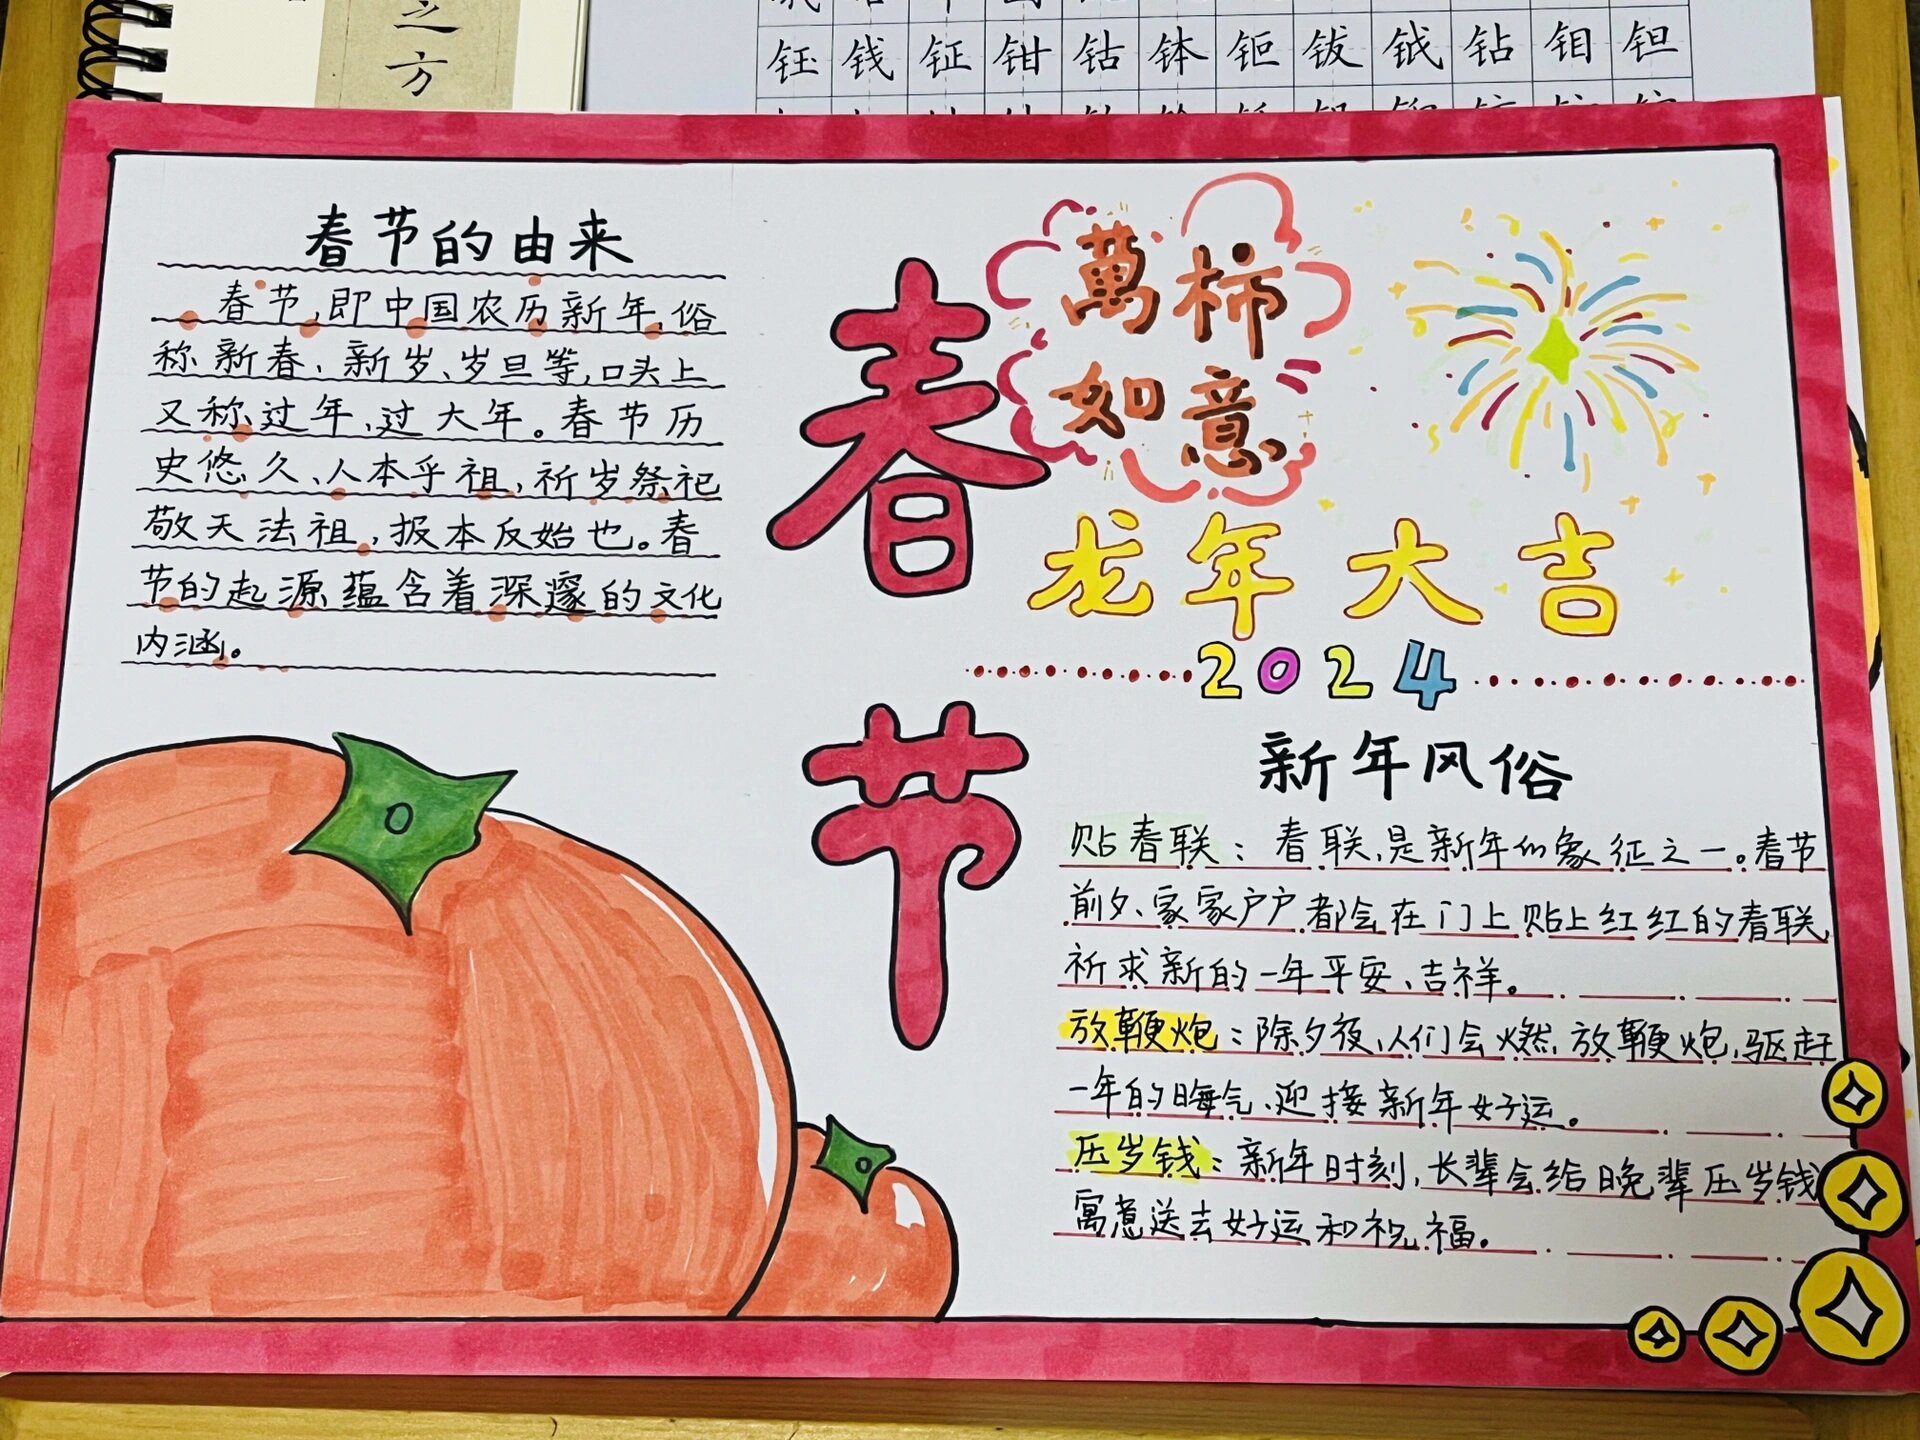 之
方
钰钱钲钳钴钵钜钹钺钻钼钽
春节的由来
春节,即中国农历新年,俗
称新春、新岁、岁旦等,口头上
又称过年、过大年。春节历
史悠久、人本乎祖,祈岁祭祀
敬天法祖,报本反始也。春
节的起源蕴含着深邃的文化
内涵。
春节
萬柿
如意
龙年大吉
2024
新年风俗
贴春联:春联,是新年的象征之一。春节
前夕、家家户户都会在门上贴上红红的春联,
祈求新的一年平安、吉祥。
放鞭炮:除夕夜、人们会燃放鞭炮,驱赶
一年的晦气、迎接新年好运。
压岁钱:新年时刻,长辈会给晚辈压岁钱
寓意送去好运和祝福。